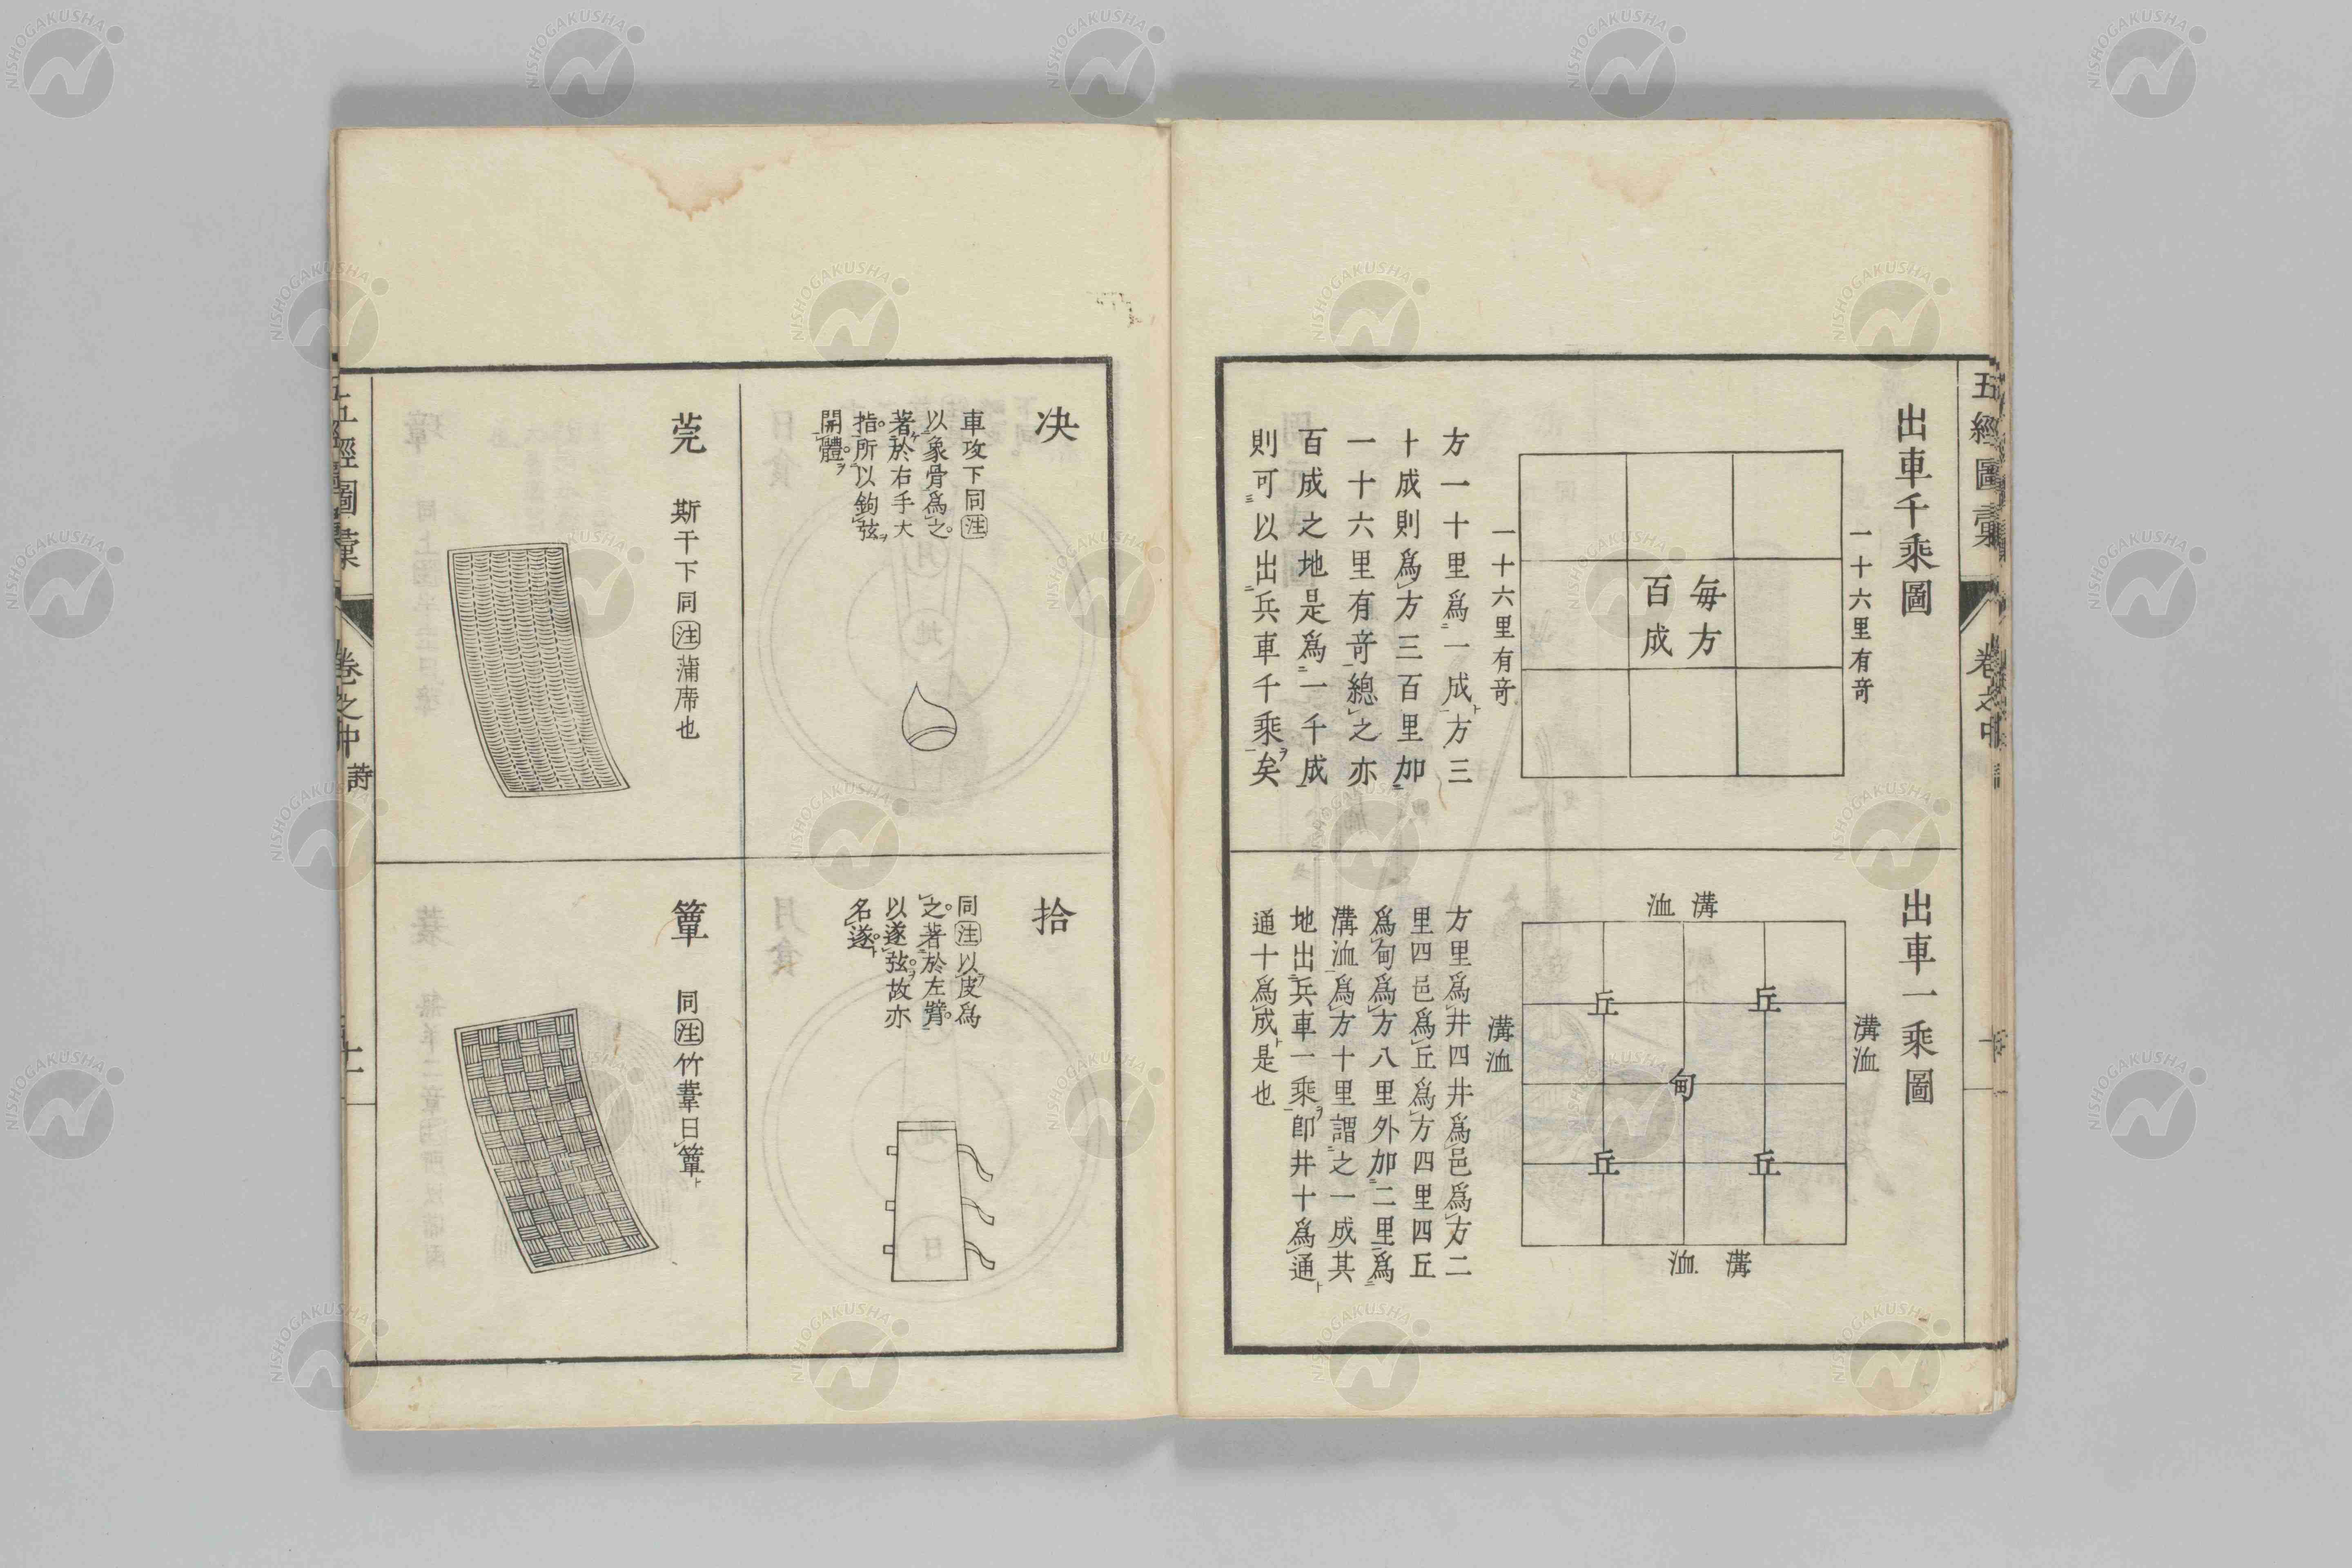 五經圖彙
卷之中
出車千乘圖
一十六里有竒
每方
百成
一十六里有竒
方一十里爲一成方三
十成則爲方三百里加
一十六里有竒總之亦
百成之地是爲一千成
則可以出兵車千乘矣
出車一乘圖
溝洫
溝洫
丘
丘
甸
丘
丘
溝洫
溝洫
方里爲井四井爲邑爲方二
里四邑爲丘爲方四里四丘
爲甸爲方八里外加二里爲
溝洫爲方十里謂之一成其
地出兵車一乘卽井十爲通
通十爲成是也
决
車攻下同注
以象骨爲之
著於右手大
指所以鉤弦
開體
拾
同注以皮爲
之著於左臂
以遂弦故亦
名遂
莞
斯干下同注蒲席也
簟
同注竹葦曰簟
五經圖彙
卷之中
詩
十一
NISHOGAKUSHA